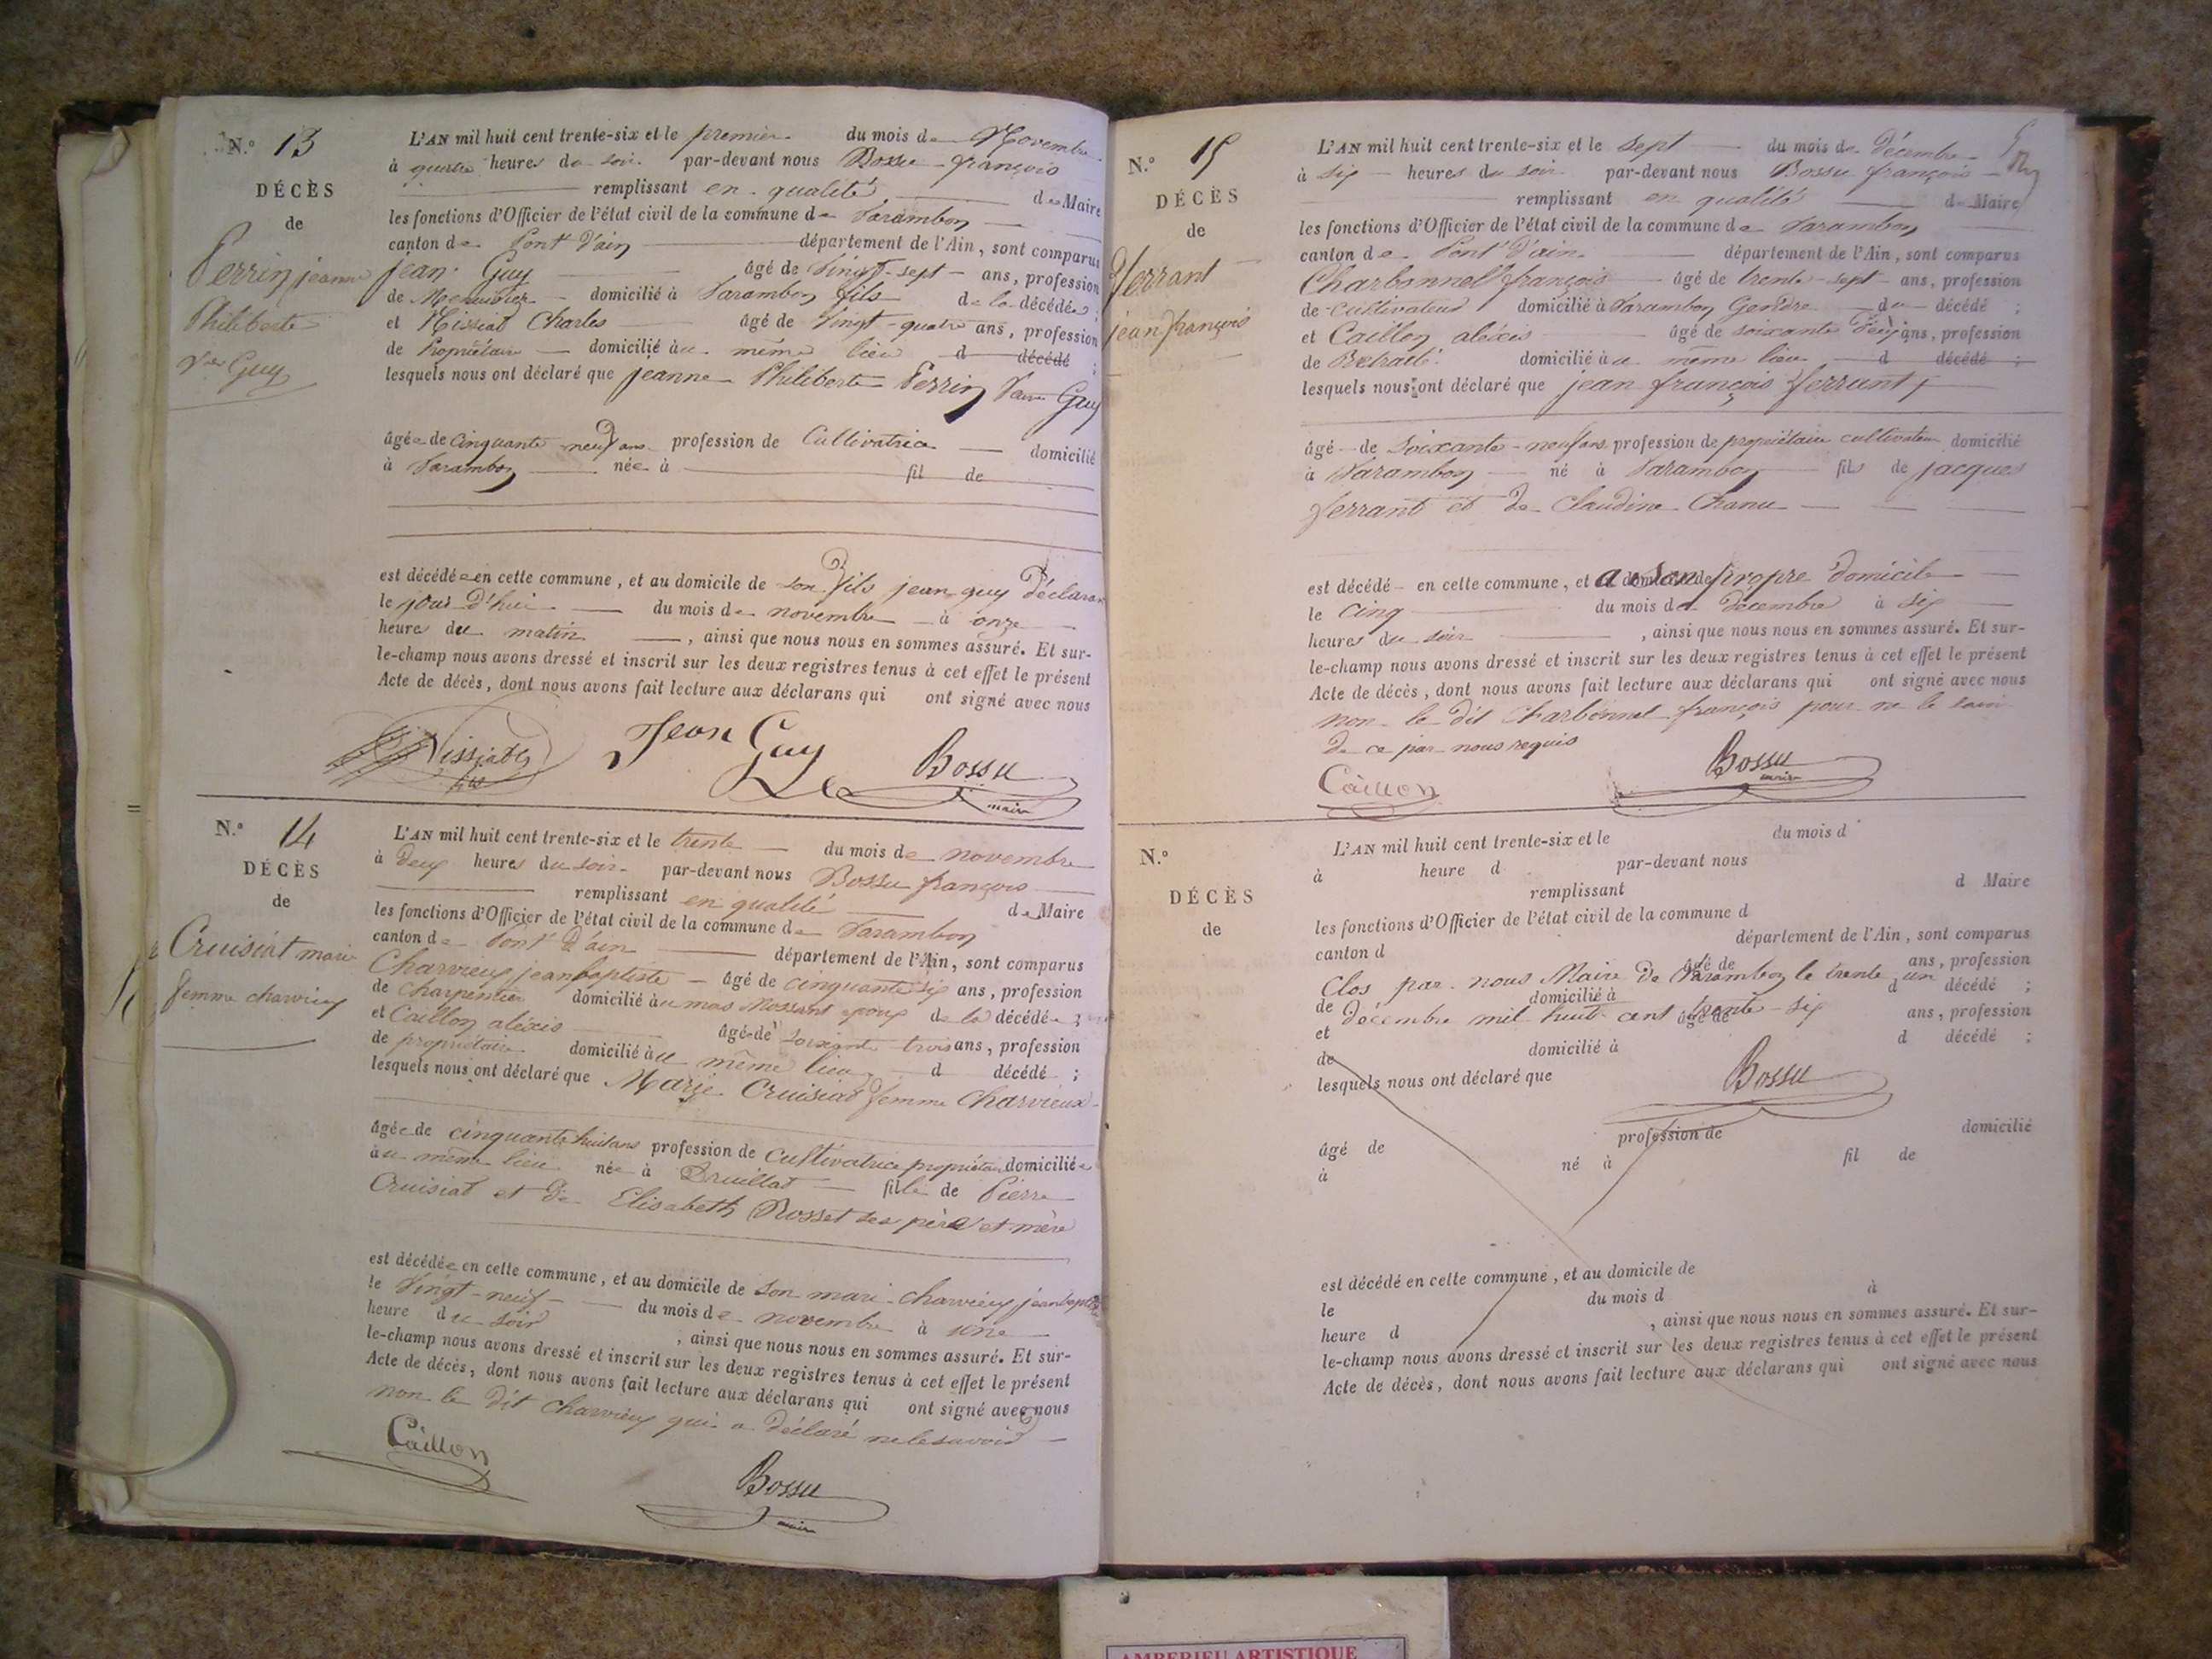 N.° 13
DÉCÈS
de
Perrin jeanne
Philiberte
Guy
L'AN mil huit cent trente-six et le premier du mois de Novembre
à quatre heures du soir par-devant nous Bossu françois
remplissant en qualité de Maire
les fonctions d'Officier de l'état civil de la commune de Varambon
canton de Pont d'ain département de l'Ain, sont comparus
jean Guy âgé de vingt-sept ans, profession
de Menuisier domicilié à Varambon fils de la décédée ;
et Missiat Charles âgé de vingt-quatre ans, profession
de Propriétaire domicilié au même lieu d décédé ;
lesquels nous ont déclaré que jeanne Philiberte Perrin Veuve Guy
âgée de cinquante neuf ans profession de Cultivatrice domicilié
à Varambon née à fil de
est décédée en cette commune, et au domicile de son fils jean guy déclarant
le jour d'hui du mois de novembre à onze
heures du matin , ainsi que nous nous en sommes assuré. Et sur-
le-champ nous avons dressé et inscrit sur les deux registres tenus à cet effet le présent
Acte de décès, dont nous avons fait lecture aux déclarans qui ont signé avec nous
Jean Guy
Bossu
maire
N.° 14
DÉCÈS
de
Cruisiat marie
femme charvieux
L'AN mil huit cent trente-six et le trente du mois de novembre
à deux heures du soir par-devant nous Bossu françois
remplissant en qualité de Maire
les fonctions d'Officier de l'état civil de la commune de Varambon
canton de Pont d'ain département de l'Ain, sont comparus
Charvieux jean baptiste âgé de cinquante six ans, profession
de charpentier domicilié au mas Mossant époux de la décédée ;
et Caillon aléxis âgé de soixante trois ans, profession
de propriétaire domicilié au même lieu d décédé ;
lesquels nous ont déclaré que Marie Cruisiat femme Charvieux
âgée de cinquante huit ans profession de cultivatrice propriétaire domiciliée
au même lieu née à Druillat fille de Pierre
Cruisiat et de Elisabeth Rosset ses père et mère
est décédée en cette commune, et au domicile de son mari charvieux jean baptiste
le vingt-neuf du mois de novembre à une
heure du soir , ainsi que nous nous en sommes assuré. Et sur-
le-champ nous avons dressé et inscrit sur les deux registres tenus à cet effet le présent
Acte de décès, dont nous avons fait lecture aux déclarans qui ont signé avec nous
non le dit charvieux qui a déclaré ne le savoir
Caillon
Bossu
maire
N.° 15
DÉCÈS
de
ferrant
jean françois
L'AN mil huit cent trente-six et le sept du mois de décembre
à six heures du soir par-devant nous Bossu françois
remplissant en qualité de Maire
les fonctions d'Officier de l'état civil de la commune de Varambon
canton de Pont d'ain département de l'Ain, sont comparus
Charbonnel françois âgé de trente-sept ans, profession
de cultivateur domicilié à Varambon Gendre du décédé ;
et Caillon aléxis âgé de soixante deux ans, profession
de Retraité domicilié au même lieu d décédé ;
lesquels nous ont déclaré que jean françois ferrant
âgé de soixante-neuf ans profession de propriétaire cultivateur domicilié
à Varambon né à Varambon fils de jacques
ferrant et de Claudine Chanu
est décédé en cette commune, et a son propre domicile
le cinq du mois de décembre à six
heures du soir , ainsi que nous nous en sommes assuré. Et sur-
le-champ nous avons dressé et inscrit sur les deux registres tenus à cet effet le présent
Acte de décès, dont nous avons fait lecture aux déclarans qui ont signé avec nous
non le dit Charbonnel françois pour ne le savoir
de ce par nous requis
Caillon
Bossu
maire
N.°
DÉCÈS
de
L'AN mil huit cent trente-six et le du mois d
à heure d par-devant nous
remplissant d Maire
les fonctions d'Officier de l'état civil de la commune d
canton d département de l'Ain, sont comparus
âgé de ans, profession
Clos par nous Maire de Varambon le trente un
de domicilié à d décédé ;
décembre mil huit cent trente-six
et âgé de ans, profession
de domicilié à d décédé ;
lesquels nous ont déclaré que
Bossu
âgé de profession de domicilié
à né à fil de
est décédé en cette commune, et au domicile de
le du mois d à
heure d , ainsi que nous nous en sommes assuré. Et sur-
le-champ nous avons dressé et inscrit sur les deux registres tenus à cet effet le présent
Acte de décès, dont nous avons fait lecture aux déclarans qui ont signé avec nous
AMBERIEU ARTISTIQUE